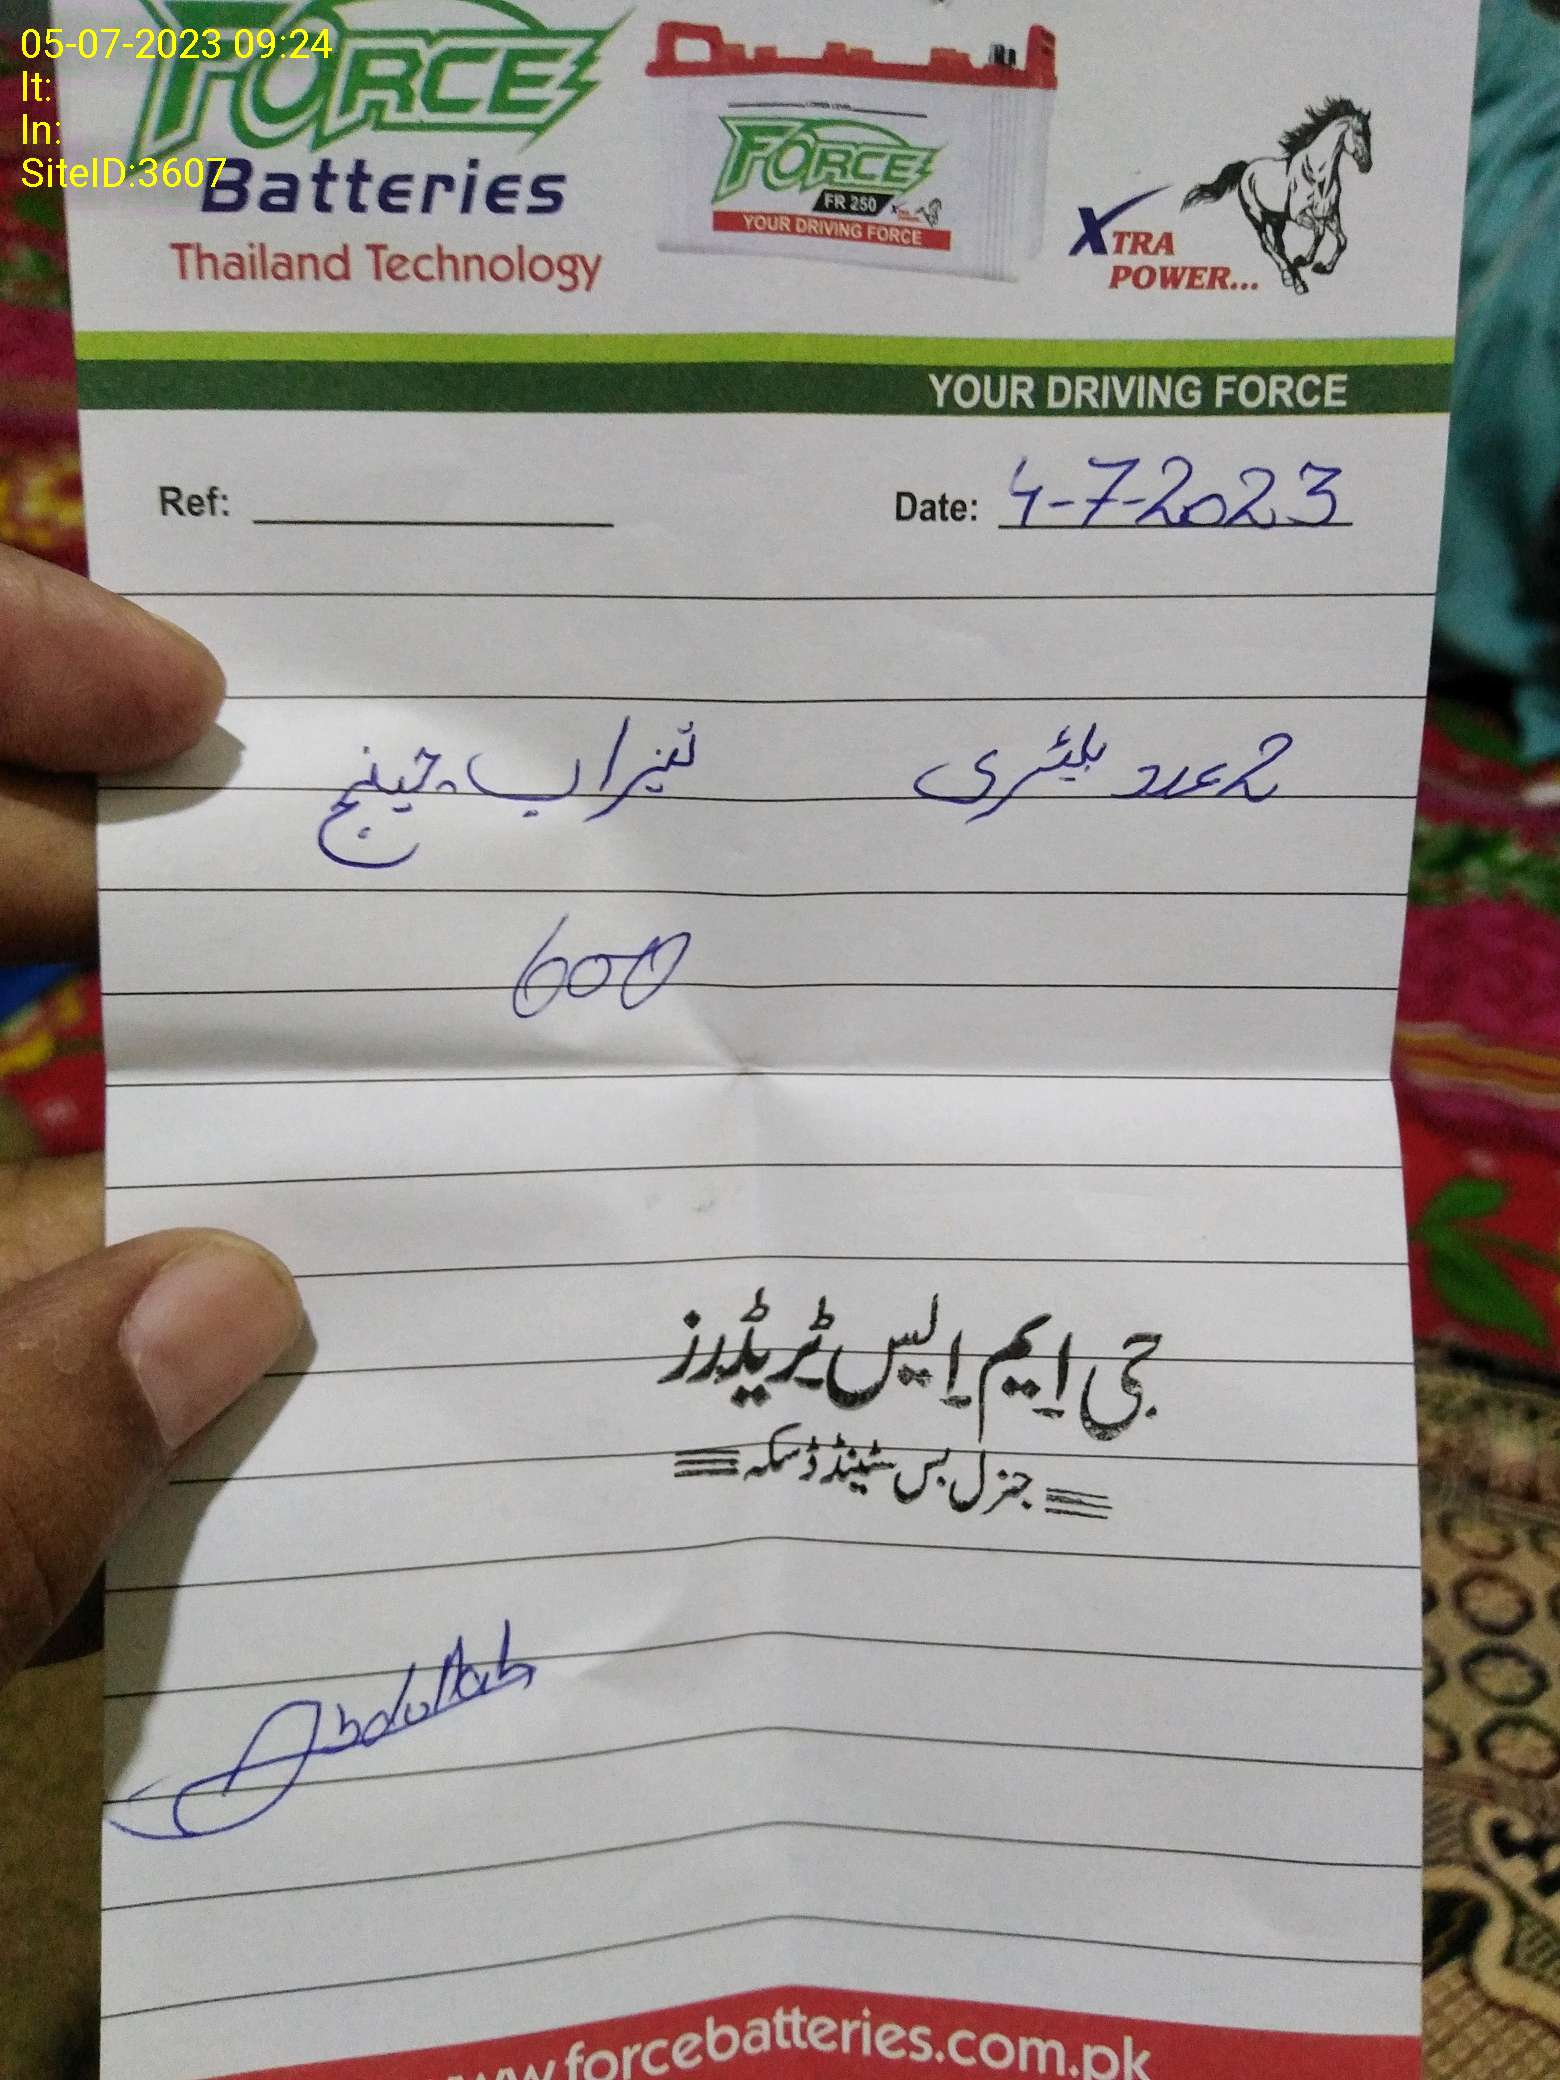 05-07-2023 09:24
lt:
ln:
SiteID:3607
FORCE
Batteries
Thailand Technology
FORCE
FR 250
YOUR DRIVING FORCE
XTRA
POWER...
YOUR DRIVING FORCE
Ref:
Date: 4-7-2023
2 عدد بیٹری تیزاب چینج
600
جی ایم ایس ٹریڈرز
جنرل بس سٹینڈ ڈسکہ
Abdullah
www.forcebatteries.com.pk